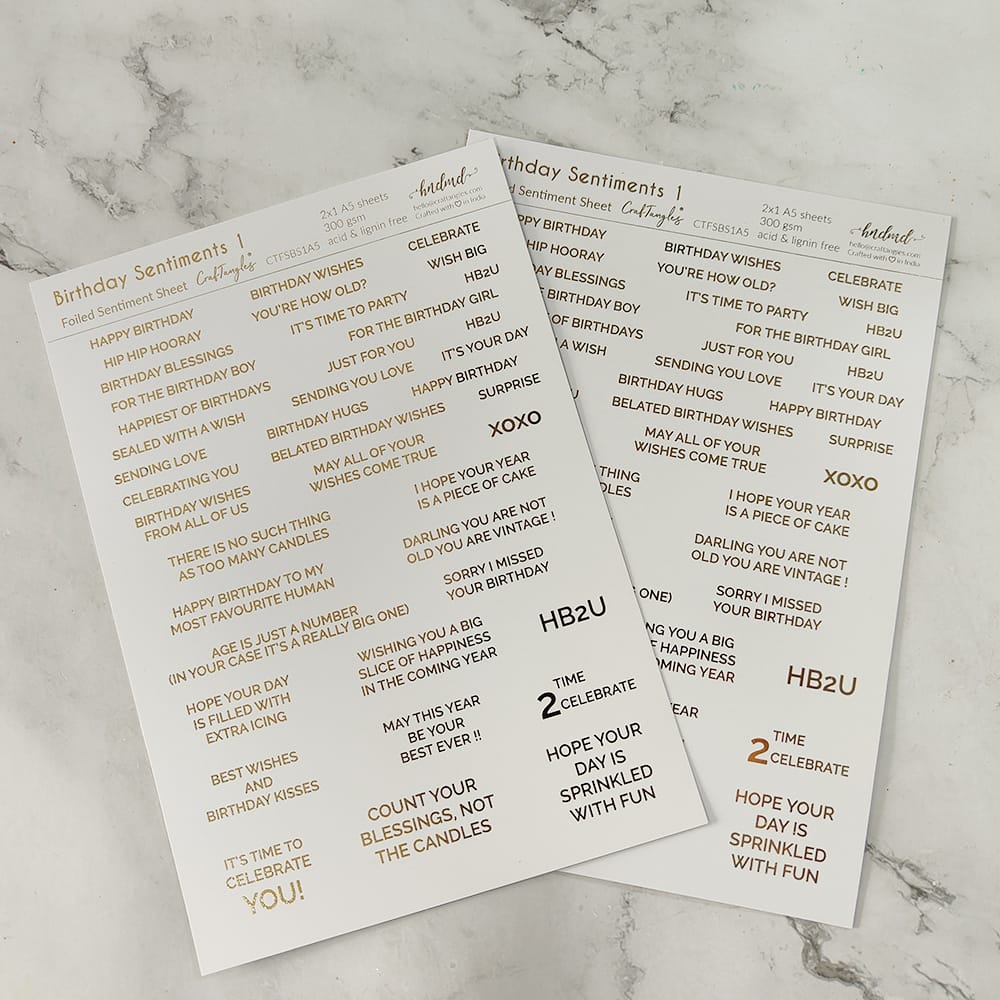 Birthday Sentiments 1
Foiled Sentiment Sheet CrafTangles CTFSBS1A5
2x1 A5 sheets
300 gsm
acid & lignin free
hndmd
hello@craftangles.com
Crafted with ♡ in India
HAPPY BIRTHDAY
BIRTHDAY WISHES
CELEBRATE
HIP HIP HOORAY
YOU'RE HOW OLD?
WISH BIG
BIRTHDAY BLESSINGS
IT'S TIME TO PARTY
HB2U
FOR THE BIRTHDAY BOY
FOR THE BIRTHDAY GIRL
HAPPIEST OF BIRTHDAYS
JUST FOR YOU
HB2U
SEALED WITH A WISH
SENDING YOU LOVE
IT'S YOUR DAY
SENDING LOVE
BIRTHDAY HUGS
HAPPY BIRTHDAY
CELEBRATING YOU
BELATED BIRTHDAY WISHES
SURPRISE
BIRTHDAY WISHES
FROM ALL OF US
MAY ALL OF YOUR
WISHES COME TRUE
XOXO
THERE IS NO SUCH THING
AS TOO MANY CANDLES
I HOPE YOUR YEAR
IS A PIECE OF CAKE
HAPPY BIRTHDAY TO MY
MOST FAVOURITE HUMAN
DARLING YOU ARE NOT
OLD YOU ARE VINTAGE !
AGE IS JUST A NUMBER
(IN YOUR CASE IT'S A REALLY BIG ONE)
SORRY I MISSED
YOUR BIRTHDAY
HOPE YOUR DAY
IS FILLED WITH
EXTRA ICING
WISHING YOU A BIG
SLICE OF HAPPINESS
IN THE COMING YEAR
HB2U
BEST WISHES
AND
BIRTHDAY KISSES
MAY THIS YEAR
BE YOUR
BEST EVER !!
TIME
2 CELEBRATE
IT'S TIME TO
CELEBRATE
YOU!
COUNT YOUR
BLESSINGS, NOT
THE CANDLES
HOPE YOUR
DAY IS
SPRINKLED
WITH FUN
rthday Sentiments 1
ed Sentiment Sheet CrafTangles CTFSBS1A5
2x1 A5 sheets
300 gsm
acid & lignin free
hndmd
hello@craftangles.com
Crafted with ♡ in India
PPY BIRTHDAY
BIRTHDAY WISHES
CELEBRATE
HIP HOORAY
YOU'RE HOW OLD?
WISH BIG
AY BLESSINGS
IT'S TIME TO PARTY
HB2U
BIRTHDAY BOY
FOR THE BIRTHDAY GIRL
OF BIRTHDAYS
JUST FOR YOU
HB2U
A WISH
SENDING YOU LOVE
IT'S YOUR DAY
BIRTHDAY HUGS
HAPPY BIRTHDAY
BELATED BIRTHDAY WISHES
SURPRISE
MAY ALL OF YOUR
WISHES COME TRUE
XOXO
THING
DLES
I HOPE YOUR YEAR
IS A PIECE OF CAKE
DARLING YOU ARE NOT
OLD YOU ARE VINTAGE !
ONE)
SORRY I MISSED
YOUR BIRTHDAY
NG YOU A BIG
F HAPPINESS
OMING YEAR
HB2U
EAR
TIME
2 CELEBRATE
HOPE YOUR
DAY IS
SPRINKLED
WITH FUN